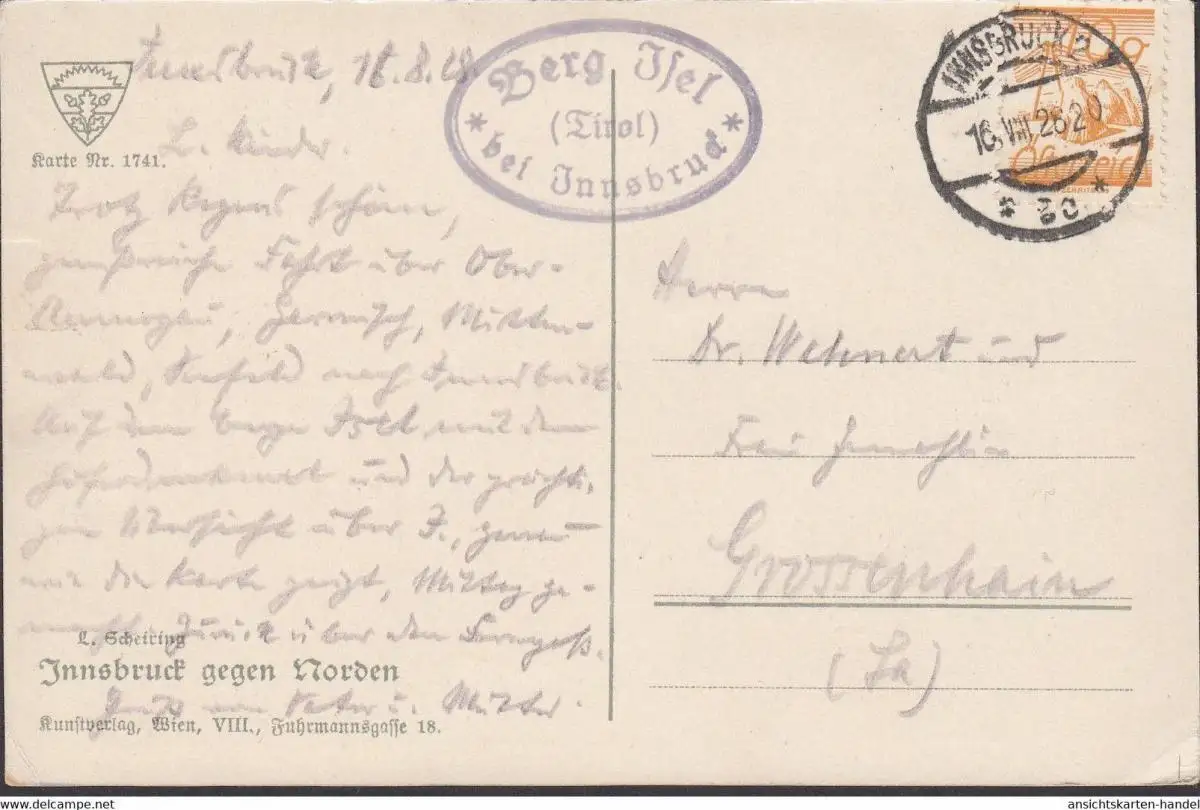 Innsbruck, 16.8.28
L. Kinder.
Trotz Regens schöne,
genußreiche Fahrt über Ober-
Ammergau, Garmisch, Mitten-
wald, Seefeld nach Innsbruck.
Auf dem Berge Isel mit dem
Hoferdenkmal und der prächti-
gen Übersicht über I., genau
wie die Karte zeigt, Mittag ge-
macht. Zurück über den Fernpaß.
Gruß von Vater u. Mutter.
Karte Nr. 1741.
L. Scheiring
Innsbruck gegen Norden
Kunstverlag, Wien, VIII., Fuhrmannsgasse 18.
* Berg Isel *
(Tirol)
bei Innsbruck
INNSBRUCK 2
16.VIII.28 20
Österreich
Herrn
Dr. Wehnert und
Frau Gemahlin
Grossenhain
(Sa)
oldthing.de
ansichtskarten-handel